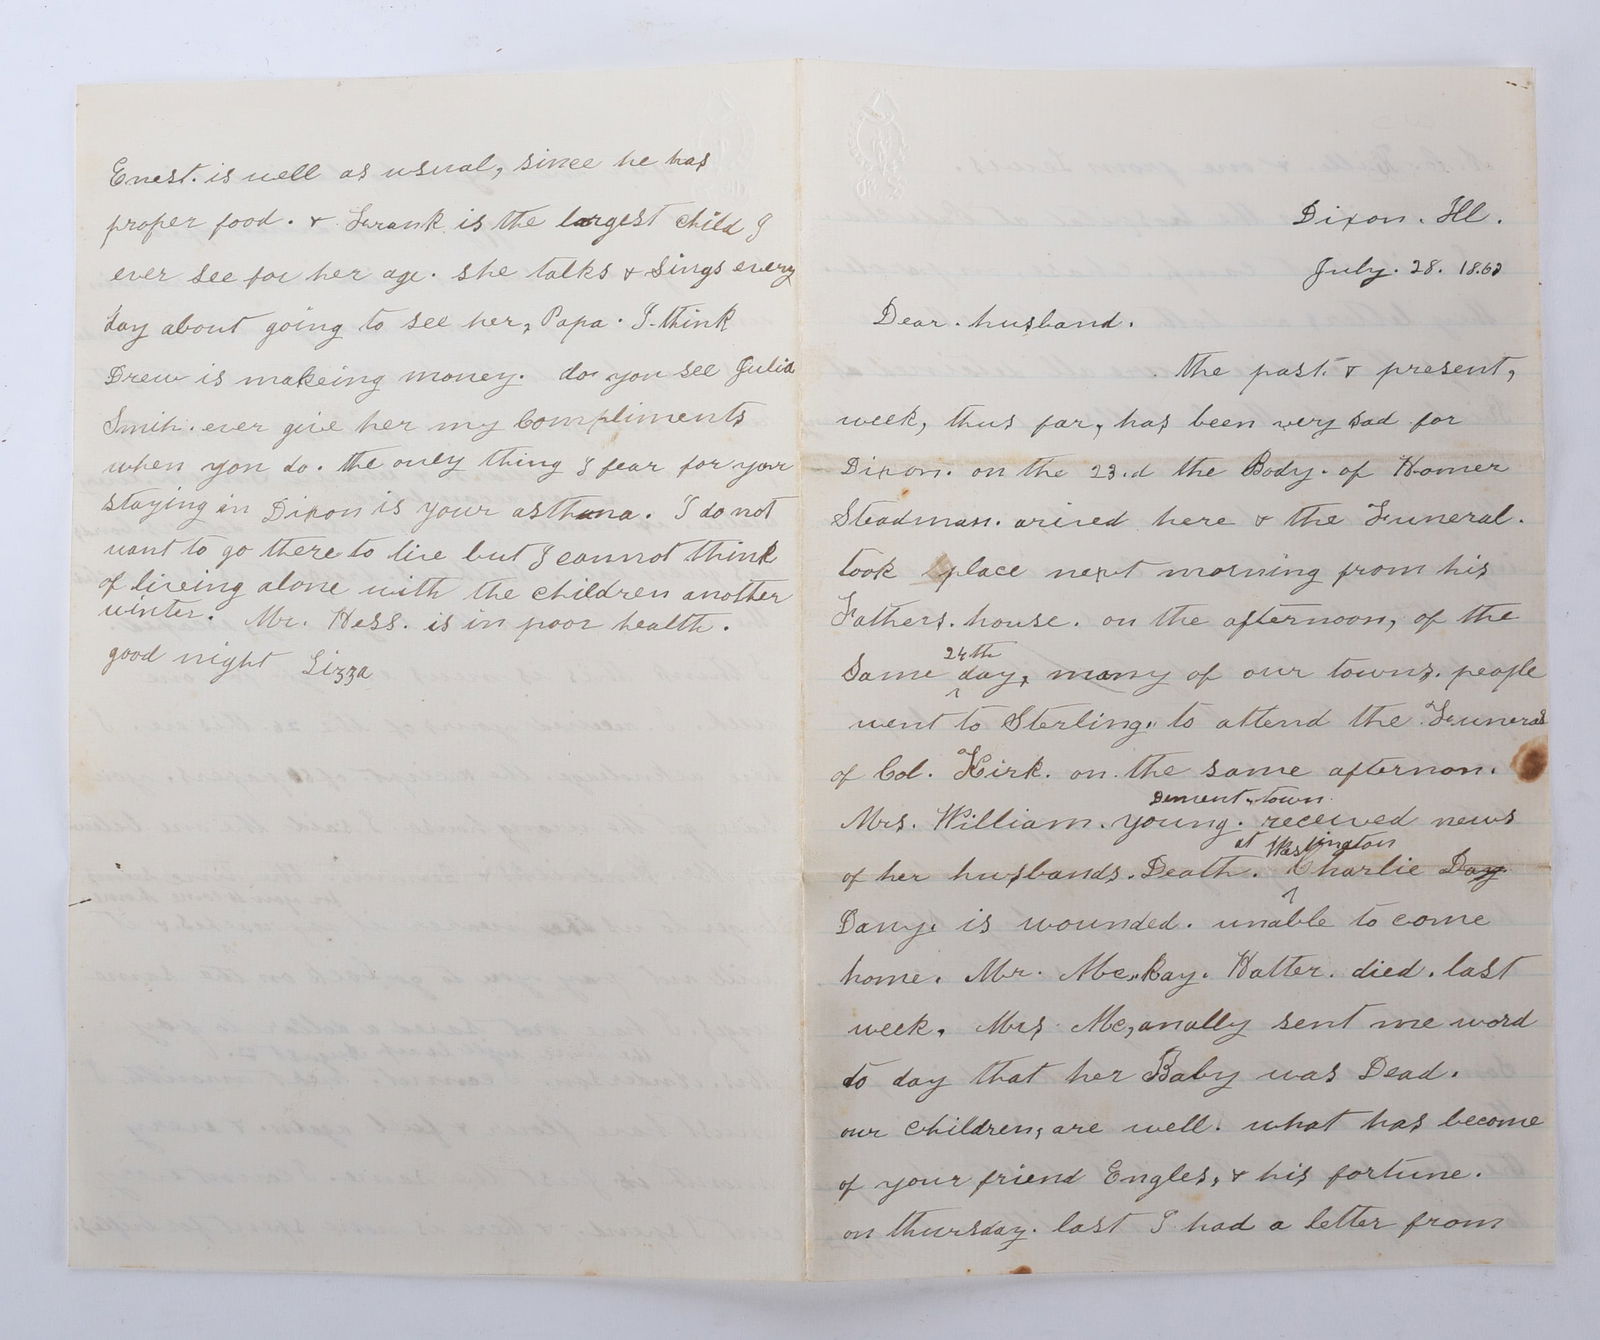 Dixon. Ill.
July. 28. 1863
Dear. husband.
the past. & present,
week, thus far, has been very sad for
Dixon. on the 23.d the Body. of Homer
Steadman. arived here & the Funeral.
took place next morning from his
Fathers. house. on the afternoon, of the
24th
Same day, many of our towns. people
went to Sterling. to attend the Funeral
of Col. Kirk. on the same afternon.
Dement. town.
Mrs. William. Young. received news
at Washington
of her husbands. Death. Charlie Day
Davy. is wounded. unable to come
home. Mr. Mc,,Kay. Hatter. died. last
week. Mrs Mc,anally sent me word
to day that her Baby was Dead.
our children, are well. what has become
of your friend Engles, & his fortune.
on thursday. last I had a letter from
Enest. is well as usual, since he has
proper food. & Frank is the largest child I
ever see for her age. she talks & sings every
day about going to see her, Papa. I think
Drew is makeing money. do you see Julia
Smih. ever give her my Compliments
when you do. the only thing I fear for your
staying in Dixon is your asthma. I do not
want to go there to live but I cannot think
of liveing alone with the children another
winter. Mr. Hess. is in poor health.
good night Lizza